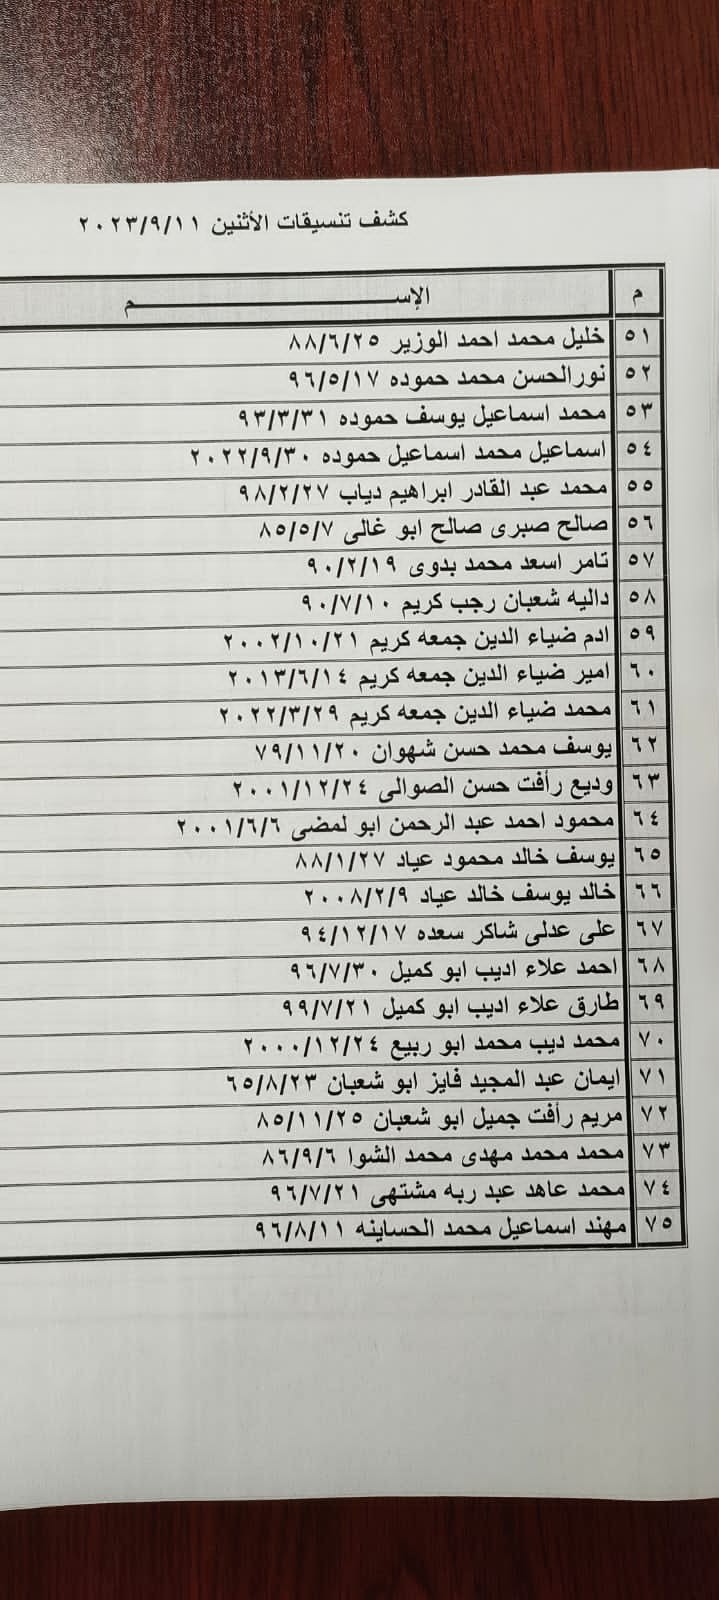 كشف تنسيقات الأثنين ٢٠٢٣/٩/١١
م الإســـــــــــــــــــــــــم
٥١ خليل محمد احمد الوزير ٨٨/٦/٢٥
٥٢ نورالحسن محمد حموده ٩٦/٥/١٧
٥٣ محمد اسماعيل يوسف حموده ٩٣/٣/٣١
٥٤ اسماعيل محمد اسماعيل حموده ٢٠٢٢/٩/٣٠
٥٥ محمد عبد القادر ابراهيم دياب ٩٨/٢/٢٧
٥٦ صالح صبرى صالح ابو غالى ٨٥/٥/٧
٥٧ تامر اسعد محمد بدوى ٩٠/٢/١٩
٥٨ داليه شعبان رجب كريم ٩٠/٧/١٠
٥٩ ادم ضياء الدين جمعه كريم ٢٠٠٢/١٠/٢١
٦٠ امير ضياء الدين جمعه كريم ٢٠١٣/٦/١٤
٦١ محمد ضياء الدين جمعه كريم ٢٠٢٢/٣/٢٩
٦٢ يوسف محمد حسن شهوان ٧٩/١١/٢٠
٦٣ وديع رأفت حسن الصوالى ٢٠٠١/١٢/٢٤
٦٤ محمود احمد عبد الرحمن ابو لمضى ٢٠٠١/٦/٦
٦٥ يوسف خالد محمود عياد ٨٨/١/٢٧
٦٦ خالد يوسف خالد عياد ٢٠٠٨/٢/٩
٦٧ على عدلى شاكر سعده ٩٤/١٢/١٧
٦٨ احمد علاء اديب ابو كميل ٩٦/٧/٣٠
٦٩ طارق علاء اديب ابو كميل ٩٩/٧/٢١
٧٠ محمد ديب محمد ابو ربيع ٢٠٠٠/١٢/٢٤
٧١ ايمان عبد المجيد فايز ابو شعبان ٦٥/٨/٢٣
٧٢ مريم رأفت جميل ابو شعبان ٨٥/١١/٢٥
٧٣ محمد محمد مهدى محمد الشوا ٨٦/٩/٦
٧٤ محمد عاهد عبد ربه مشتهى ٩٦/٧/٢١
٧٥ مهند اسماعيل محمد الحساينه ٩٦/٨/١١